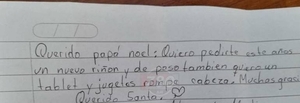 Querido papá noel: Quiero pedirte este años
un nuevo riñon y de paso tambien quiero un
tablet y jugetes rompe cabeza. Muchas gras
Querido Santa.